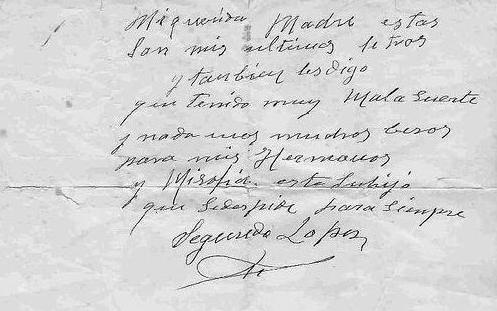 Mi querida Madre estas
son mis ultimas letras
y tanbien les digo
que tenido muy Mala Suerte
y nada mas muchos besos
para mis Hermanos
y Misofia esta Su hijo
que Sedespide para Siempre
Segundo Lopez